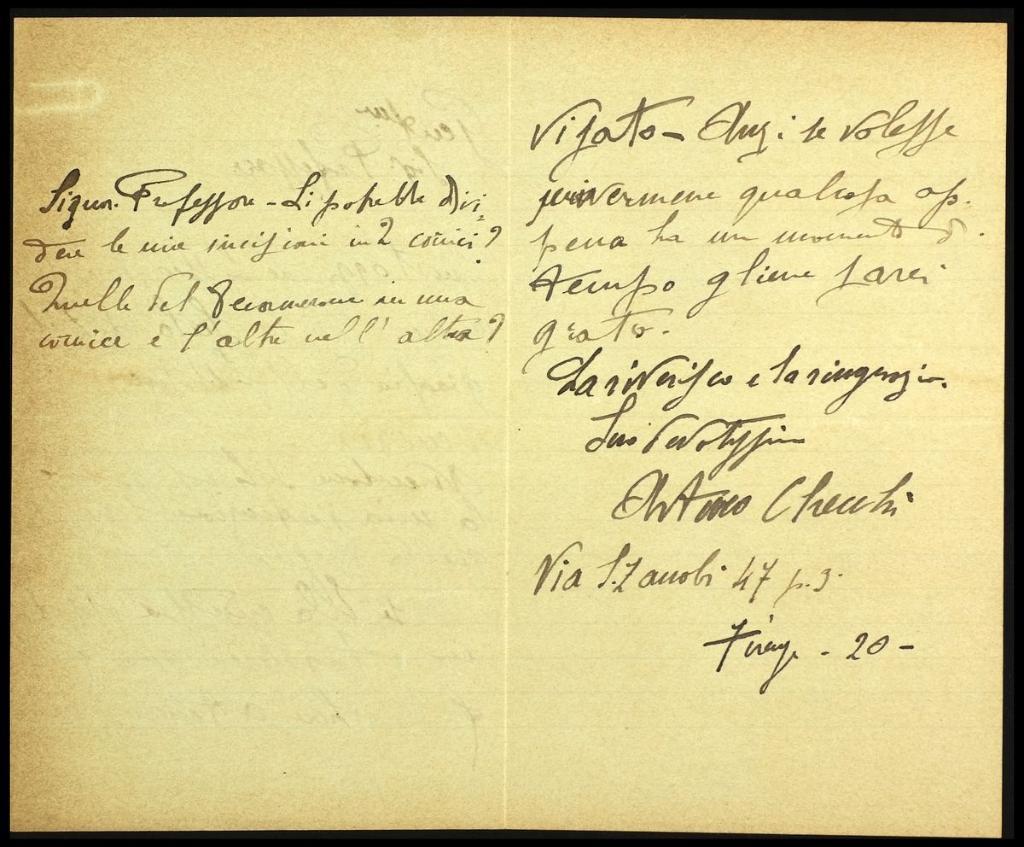 Signor Professore - Si potrebbe divi-
dere le mie incisioni in 2 cornici?
Quelle del Decamerone in una
cornice e l'altre nell'altra?
visato - Anzi se volesse
scrivermene qualcosa ap-
pena ha un momento di
tempo gliene sarei
grato.
La riverisco e la ringrazio.
Suo devotissimo
Arturo Checchi
Via S. Zanobi 47 p. 3.
Firenze - 20 -